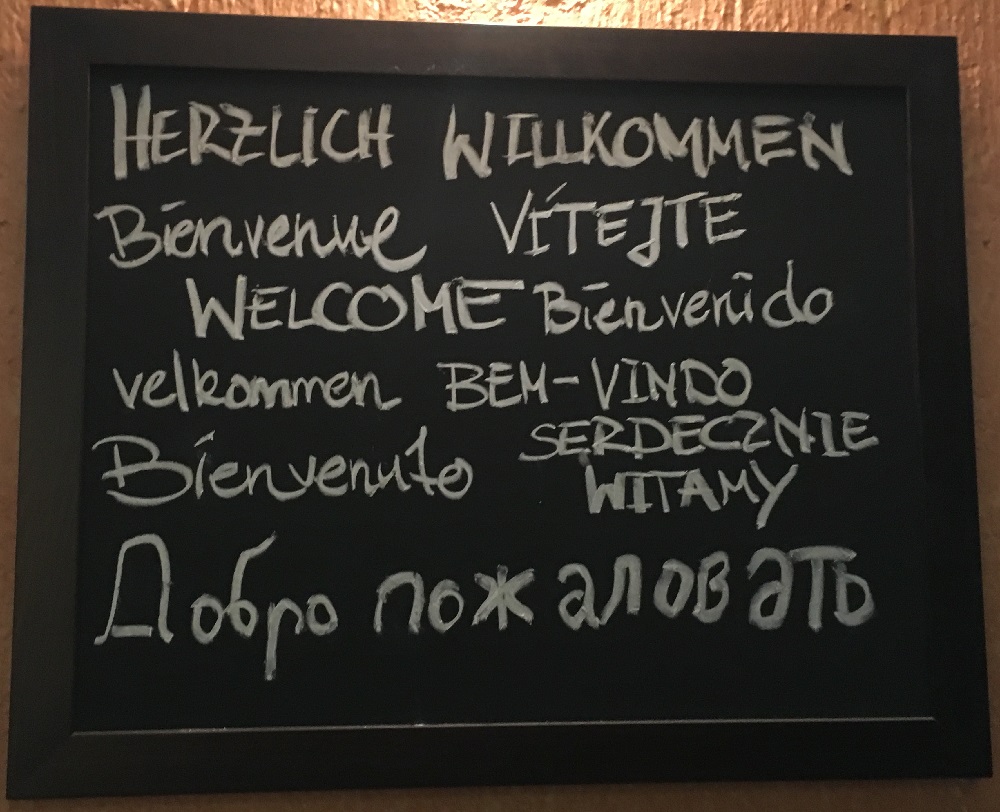 HERZLICH WILLKOMMEN
Bienvenue VÍTEJTE
WELCOME Bienvenido
velkommen BEM-VINDO
Bienvenuto SERDECZNIE
WITAMY
Добро пожаловать